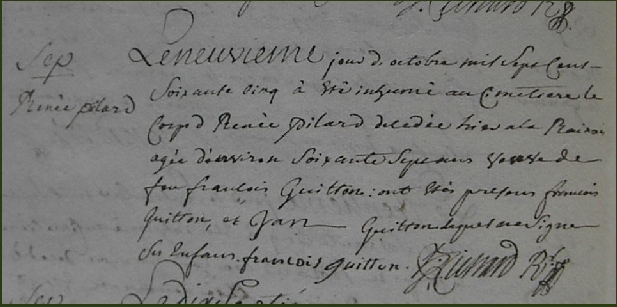 Sep
Renée pilard
Le neuvieme jour d. octobre mil sept Cens
Soixante cinq à été inhumé au Cimetiere le
Corp d Renée pilard decedée hier a la
agée d'environ Soixante Sept ans veuve de
feu francois Guitton: ont étés presens francois
Guitton, et Jan Guitton ne Signe
Ses Enfans. francois guitton.